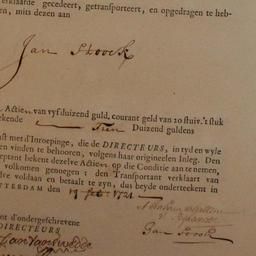 erklaarde gecedeert, getransporteert, en opgedragen te heb-
en, mits dezen aan
Jan Stoock
Actien van vyfduizend guld, courant geld van 20 stuir. 't stuk
ekende Tien Duizend guldens
st met d'Inroepinge, die de DIRECTEURS, in tyd en wyle
en vinden te behooren, volgens haar origineelen Inleg. Den
eptant bekent dezelve Actien op die Conditie aan te nemen,
volkomen genoegen: den Transportant verklaart van
e voldaan en betaalt te zyn, dus beyde onderteekent in
TERDAM den 17 feb: 1721
Jan Stoock
nt d'ondergeschrevene
DIRECTEURS